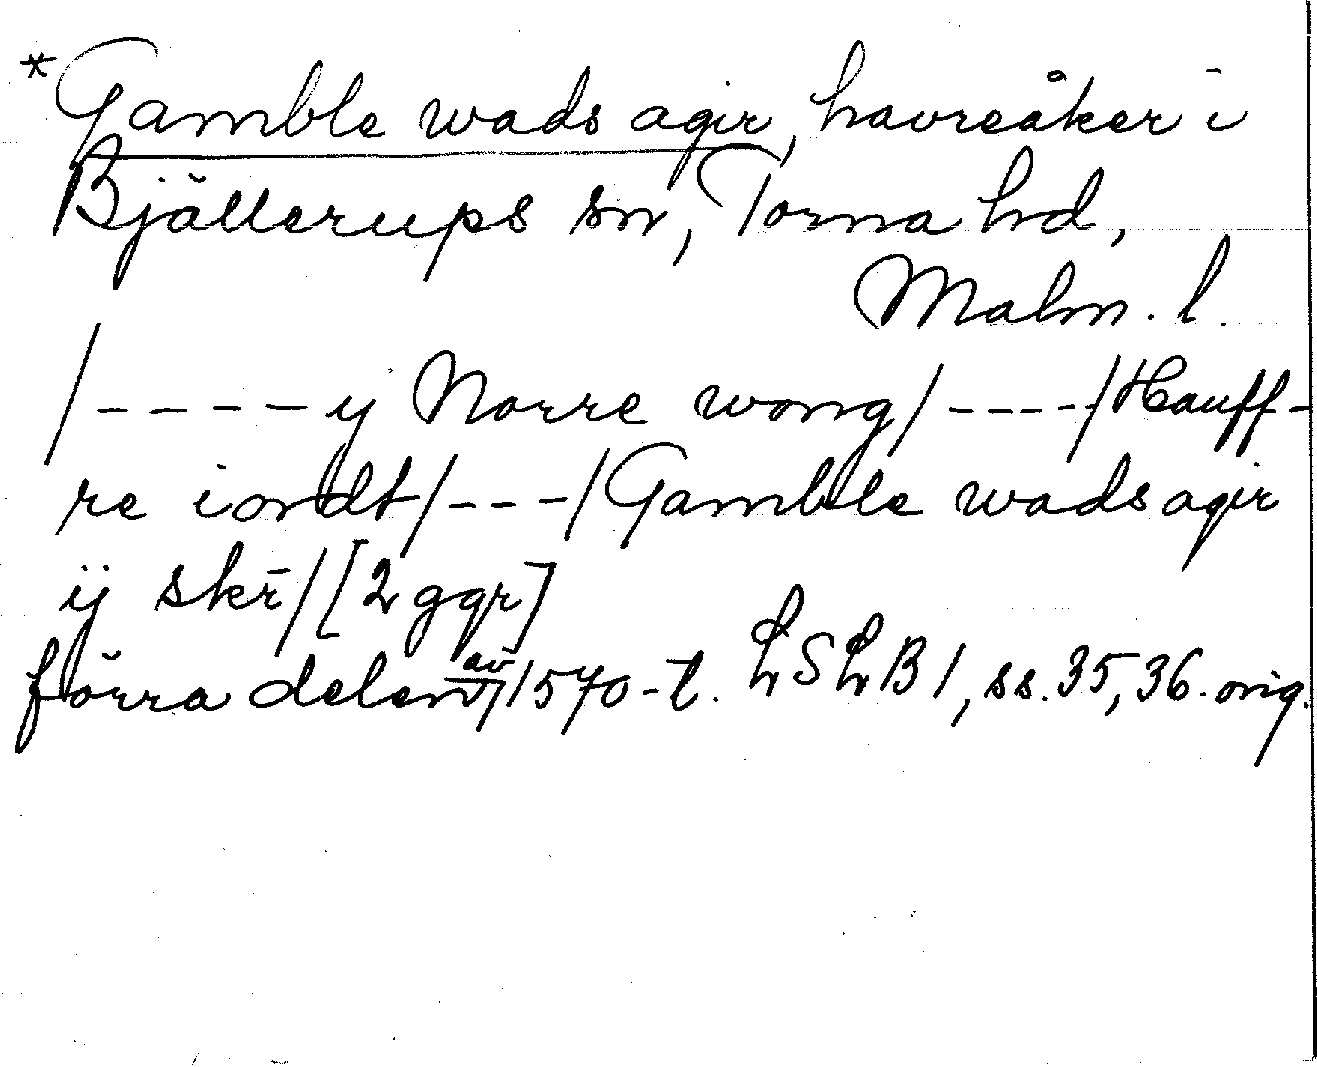 *Gamble wads agir, havreåker i
Bjällerups sn, Torna hd,
Malm. l.
/----y Norre wong/----/Hauff-
re iordt/---/Gamble wads agir
ij skr̄/[2 ggr]
förra delen av 1570-t. LSLB1, ss. 35, 36. orig.